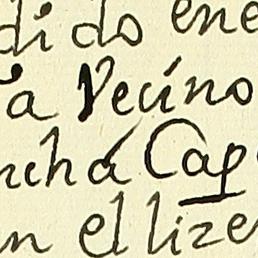 dido ene
a Vecino
ncha Cap
n el lize